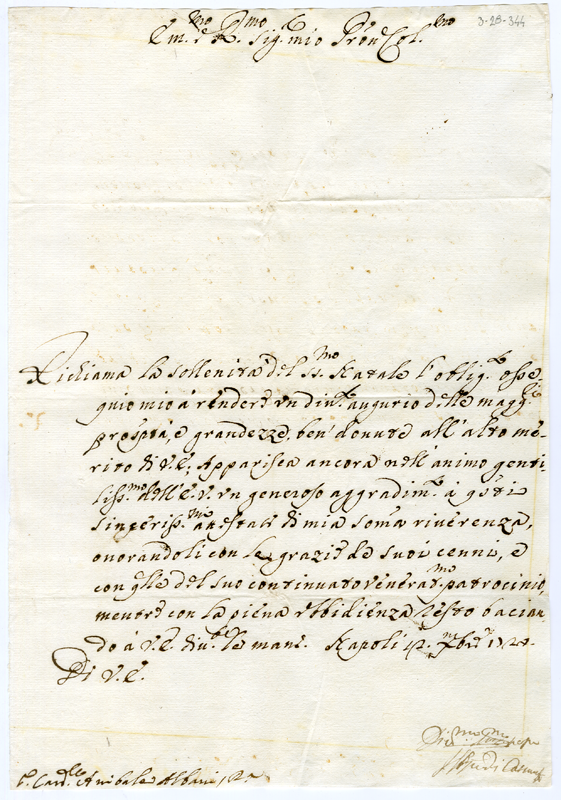 3-28-344
Em.mo e R.mo Sig.r mio Prõn Col.mo
Richiama la sollenità del SS.mo Natale l'obblig.o osse-
quio mio à rendere vn diu.to augurio delle magg.ri
prosp.tà, e grandezze, ben' douute all'alto me-
rito di V.E.; Apparisca ancora nell'animo genti-
liss.mo dell'E.V. vn generoso aggradim.to à q̃sti
sincериss.mi attestati di mia som̃a riuerenza,
onorandoli con le grazie de suoi cenni, e
con q̃lle del suo continuato venerat.mo patrocinio,
mentre con la piena vbbidienza resto bacian-
do à V.E. diu.te le mani. Napoli 12. Xbre 172
Di V.E.
S. Card.le Anibale Albani, Rã